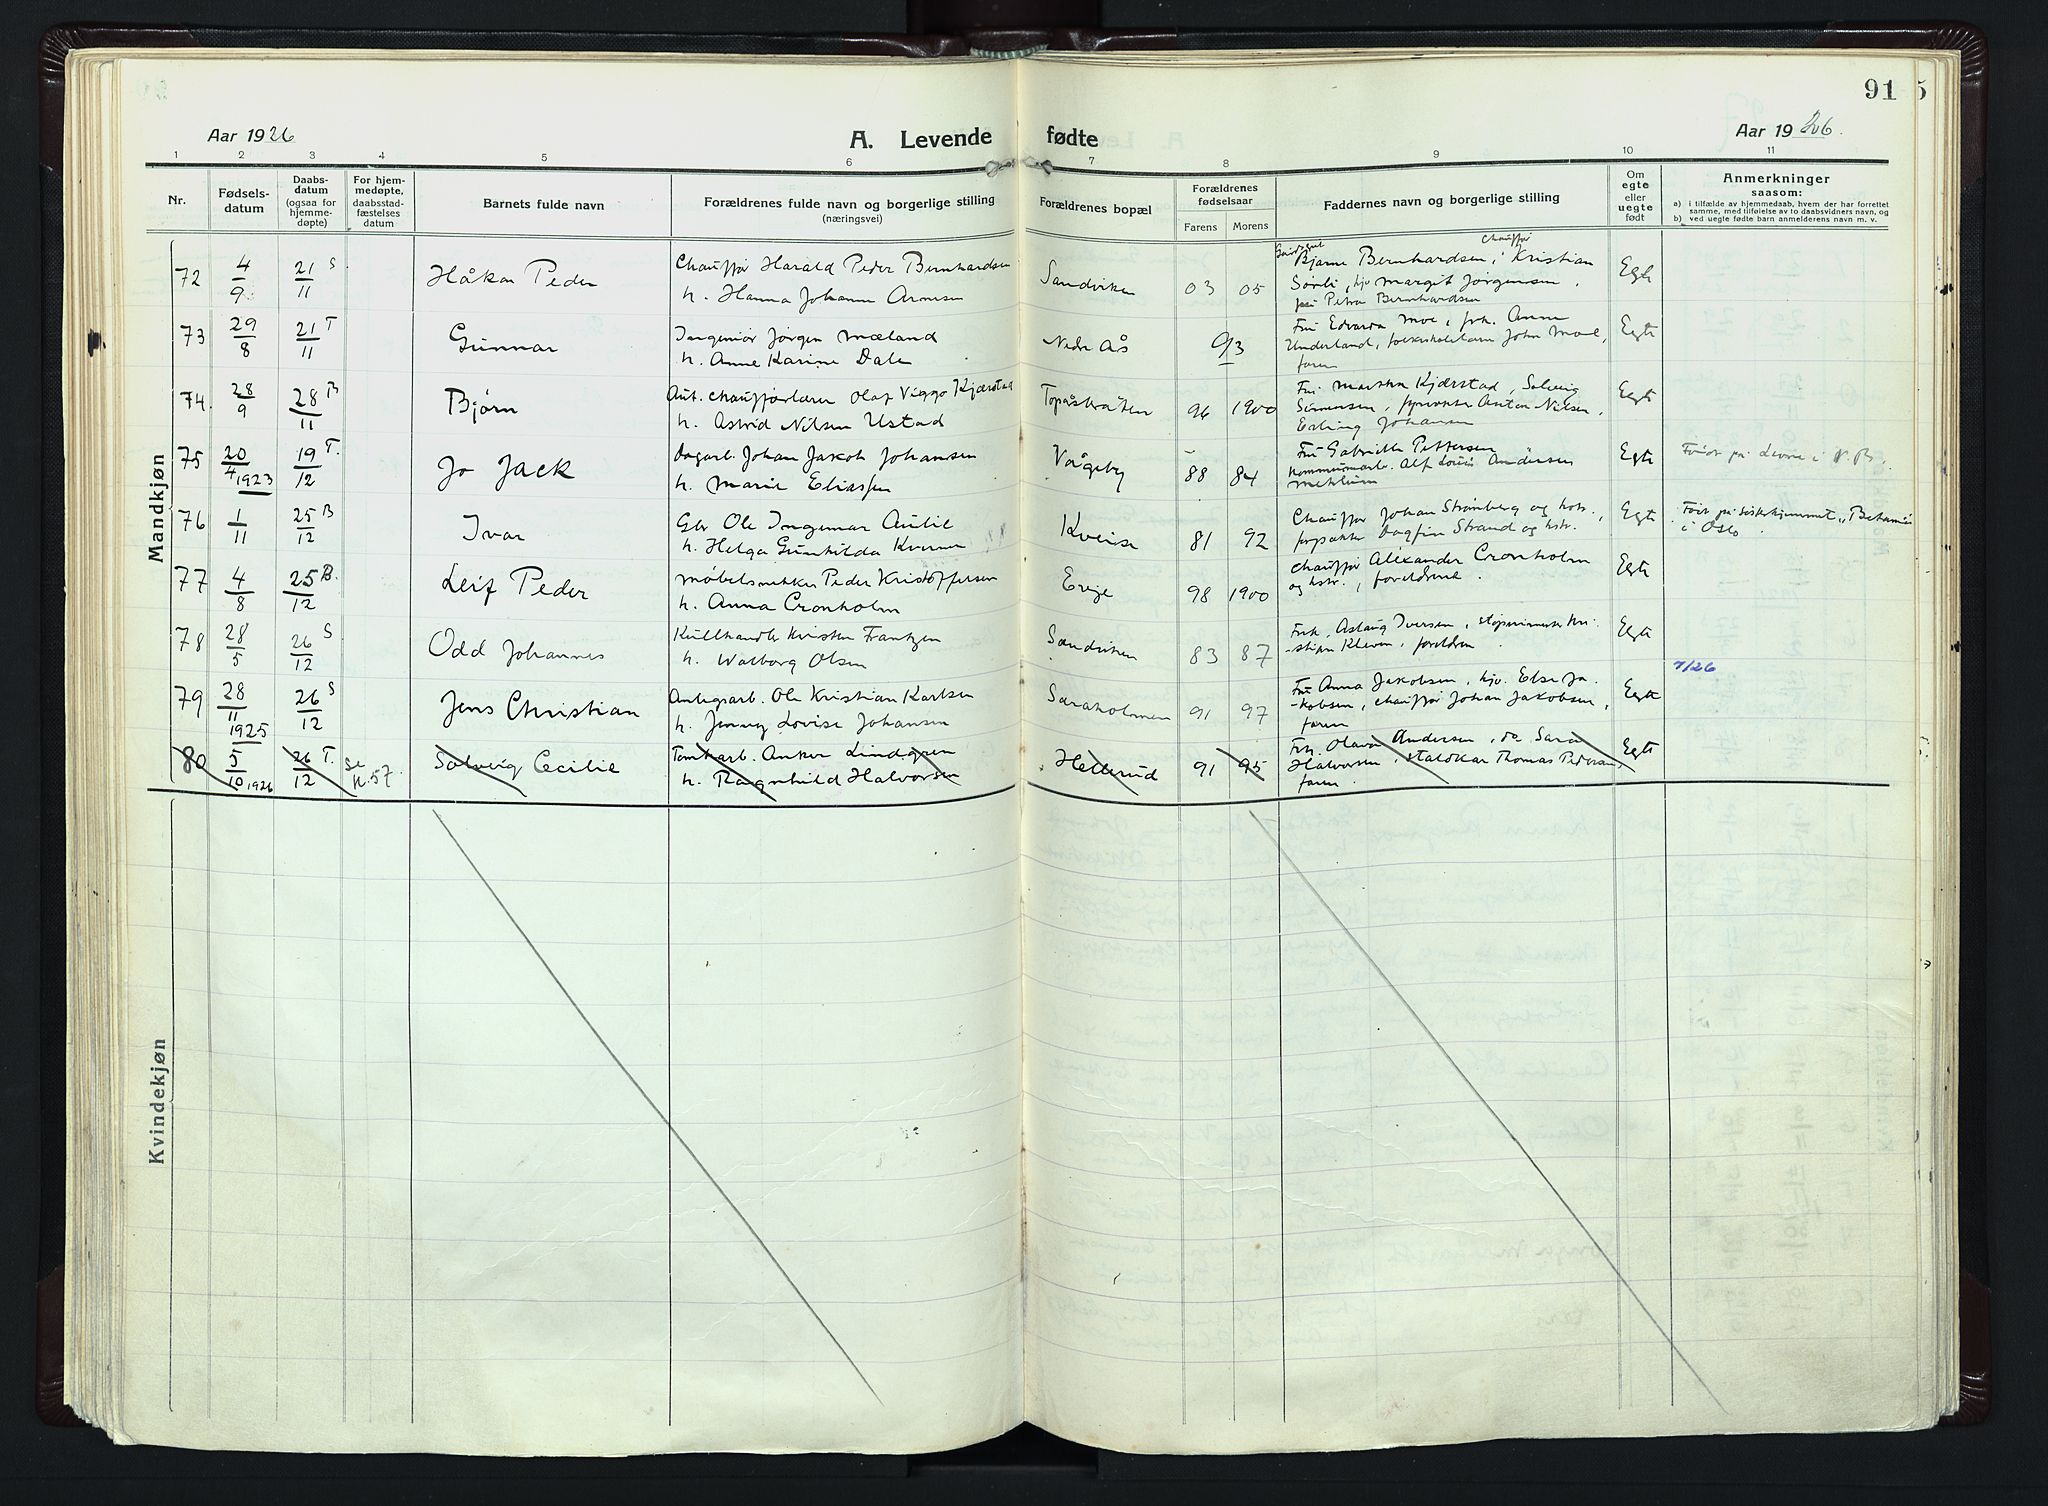 91
Aar 1926
A. Levende fødte
Aar 1926.
1 2 3 4 5 6 7 8 9 10 11
Nr.
Fødsels-
datum
Daabs-
datum
(ogsaa for
hjemme-
døpte)
For hjem-
medøpte,
daabsstad-
fæstelses
datum
Barnets fulde navn
Forældrenes fulde navn og borgerlige stilling
(næringsvei)
Forældrenes bopæl
Forældrenes
fødselsaar
Farens Morens
Faddernes navn og borgerlige stilling
Om
egte
eller
uegte
født
Anmerkninger
saasom:
a) i tilfælde av hjemmedaab, hvem der har forrettet
samme, med tilføielse av to daabsvidners navn, og
b) ved uegte fødte barn anmelderens navn m. v.
Mandkjøn
72 4/9 21/11 S Håkon Peder
Chauffør Harald Peder Bernhardsen
h. Hanna Johanne Arnesen
Sandviken 03 05
Gårdsgut Bjarne Bernhardsen, Chauffør Kristian
Sørli, hjv Margit Jørgensen,
Petra Bernhardsen
Egte
73 29/8 21/11 T Gunnar
Ingeniør Jørgen Mæland
h. Anne Karine Dale
Nedre Ås 93
Fru Edvarda Moe, frk. Anne
Underland, John Moe,
faren
Egte
74. 28/9 28/11 B Bjørn
Aut. chaufførlærer Olaf Viggo Kjærstad
h. Astrid Nilsen Ustad
96 1900
Fru Kjærstad, Solveig
Simensen, Anton Nilsen,
Erling Johansen
Egte
75 20/4 1923 19/12 T. Jo Jack
dagarb. Johan Jakob Johansen
h. Marie Eliassen
Vågeby 88 84
Fru Gabrielle Pettersen
Alf Louis Andersen
Egte
76 1/11 25/12 B Ivar
Gbr Ole Ingemar Aulie
h. Helga Gunhilda
81 92
Chauffør Johan Strømberg og hstr.,
forpakter Dagfin Strand og hstr.
Egte
Født på søsterhjemmet "Betania"
i Oslo
77 4/8 25/12 B. Leif Peder
Møbelsnekker Peder Kristoffersen
h. Anna Cronholm
Enge 98 1900
chauffør Alexander Cronholm
og hstr., foreldrene.
Egte
78 28/5 26/12 S Odd Johannes
Kullhandler Kristen Frantzen
h. Walborg Olsen
Sandviken 83 87
Frk. Aslaug Iversen, Kri-
-stian Kleven, foreldrene.
Egte
7/26
79 28/11 1925 26/12 S Jens Christian
Anlegsarb. Ole Kristian Karlsen
h. Jenny Lovise Johansen
Saraholmen 91 97
Fru Anna Jakobsen, hjv. Else Ja-
-kobsen, chauffør Johan Jakobsen,
faren
Egte
80 5/10 1926 26/12 T. Se K. 57. Solveig Cecilie
Tomtarb. Anker Lindgren
h. Ragnhild Halvorsen
Hellerud 91 95
Frk. Olava Andersen, do Sara
Halvorsen, staldkar Thomas Pedersen
faren.
Egte
Kvindekjøn